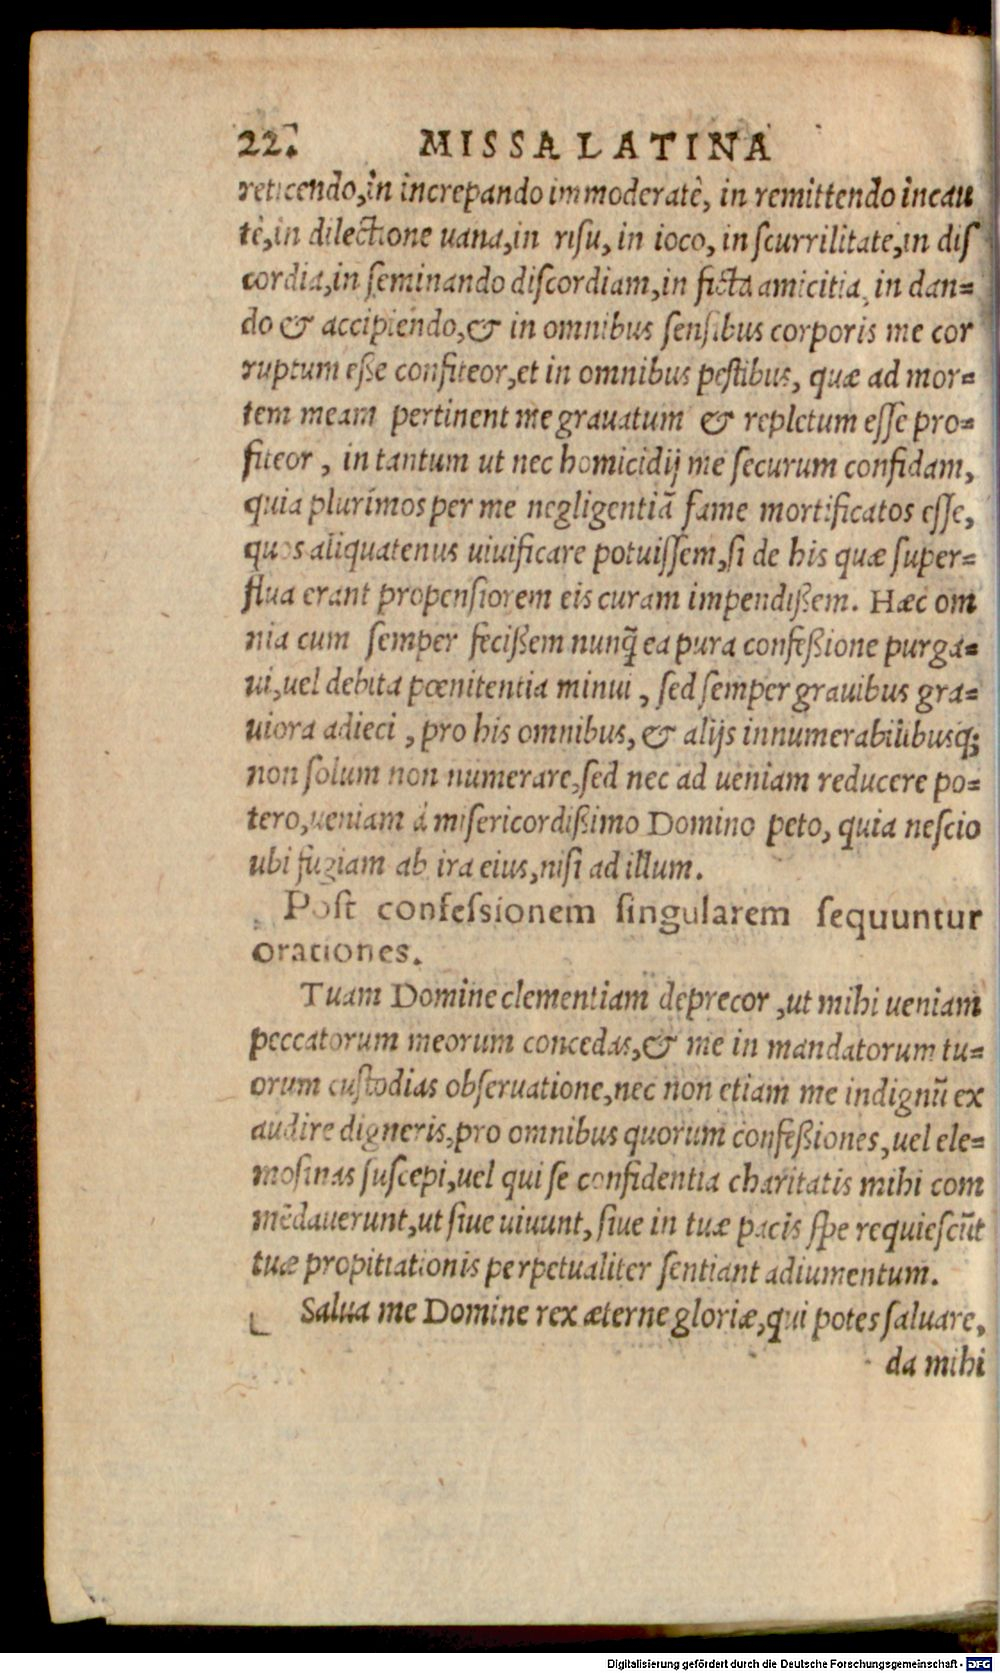 22. MISSA LATINA
reticendo, in increpando immoderatè, in remittendo incau
tè, in dilectione uana, in risu, in ioco, in ſcurrilitate, in diſ
cordia, in ſeminando diſcordiam, in ficta amicitia, in dan=
do & accipiendo, & in omnibus ſenſibus corporis me cor
ruptum eſſe confiteor, et in omnibus peſtibus, quæ ad mor=
tem meam pertinent me grauatum & repletum eſſe pro=
fiteor, in tantum ut nec homicidij me ſecurum confidam,
quia plurimos per me negligentiã fame mortificatos eſſe,
quos aliquatenus uiuificare potuiſſem, ſi de his quæ ſuper=
flua erant propenſiorem eis curam impendißem. Hæc om
nia cum ſemper fecißem nunq̃ ea pura confeßione purga=
ui, uel debita pœnitentia minui, ſed ſemper grauibus gra=
uiora adieci, pro his omnibus, & alijs innumerabilibusq;
non ſolum non numerare, ſed nec ad ueniam reducere po=
tero, ueniam à miſericordißimo Domino peto, quia neſcio
ubi fugiam ab ira eius, niſi ad illum.
Poſt confeſsionem ſingularem ſequuntur
orationes.
Tuam Domine clementiam deprecor, ut mihi ueniam
peccatorum meorum concedas, & me in mandatorum tu=
orum cuſtodias obſeruatione, nec non etiam me indignũ ex
audire digneris, pro omnibus quorum confeßiones, uel ele=
moſinas ſuſcepi, uel qui ſe confidentia charitatis mihi com
mēdauerunt, ut ſiue uiuunt, ſiue in tuæ pacis ſpe requieſcũt
tuæ propitiationis perpetualiter ſentiant adiumentum.
Salua me Domine rex æterne gloriæ, qui potes ſaluare,
da mihi
Digitalisierung gefördert durch die Deutsche Forschungsgemeinschaft - DFG